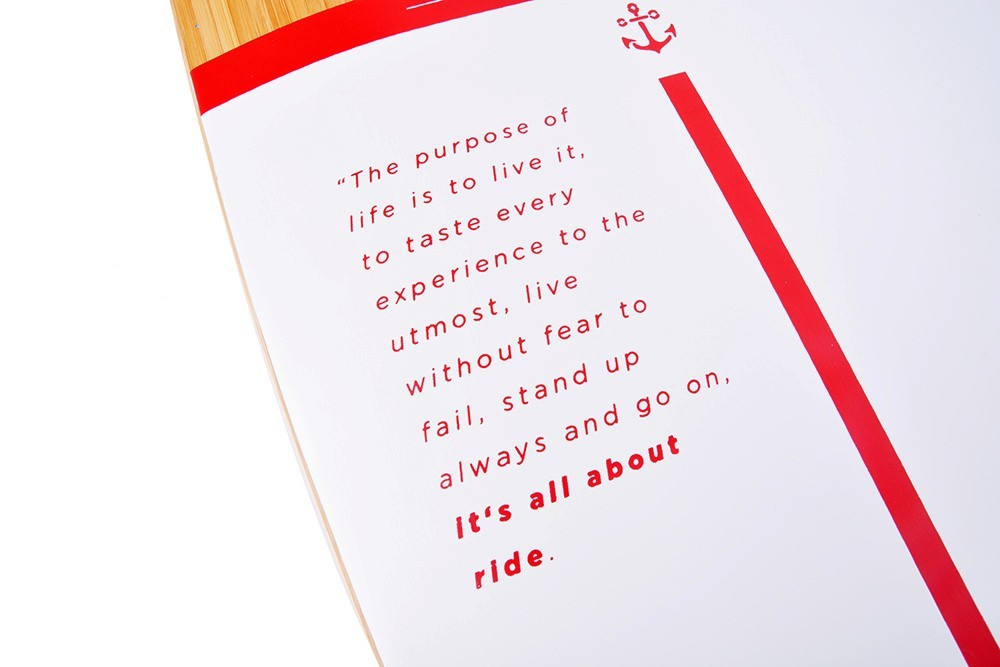 “The purpose of
life is to live it,
to taste every
experience to the
utmost, live
without fear to
fail, stand up
always and go on,
it‘s all about
ride.